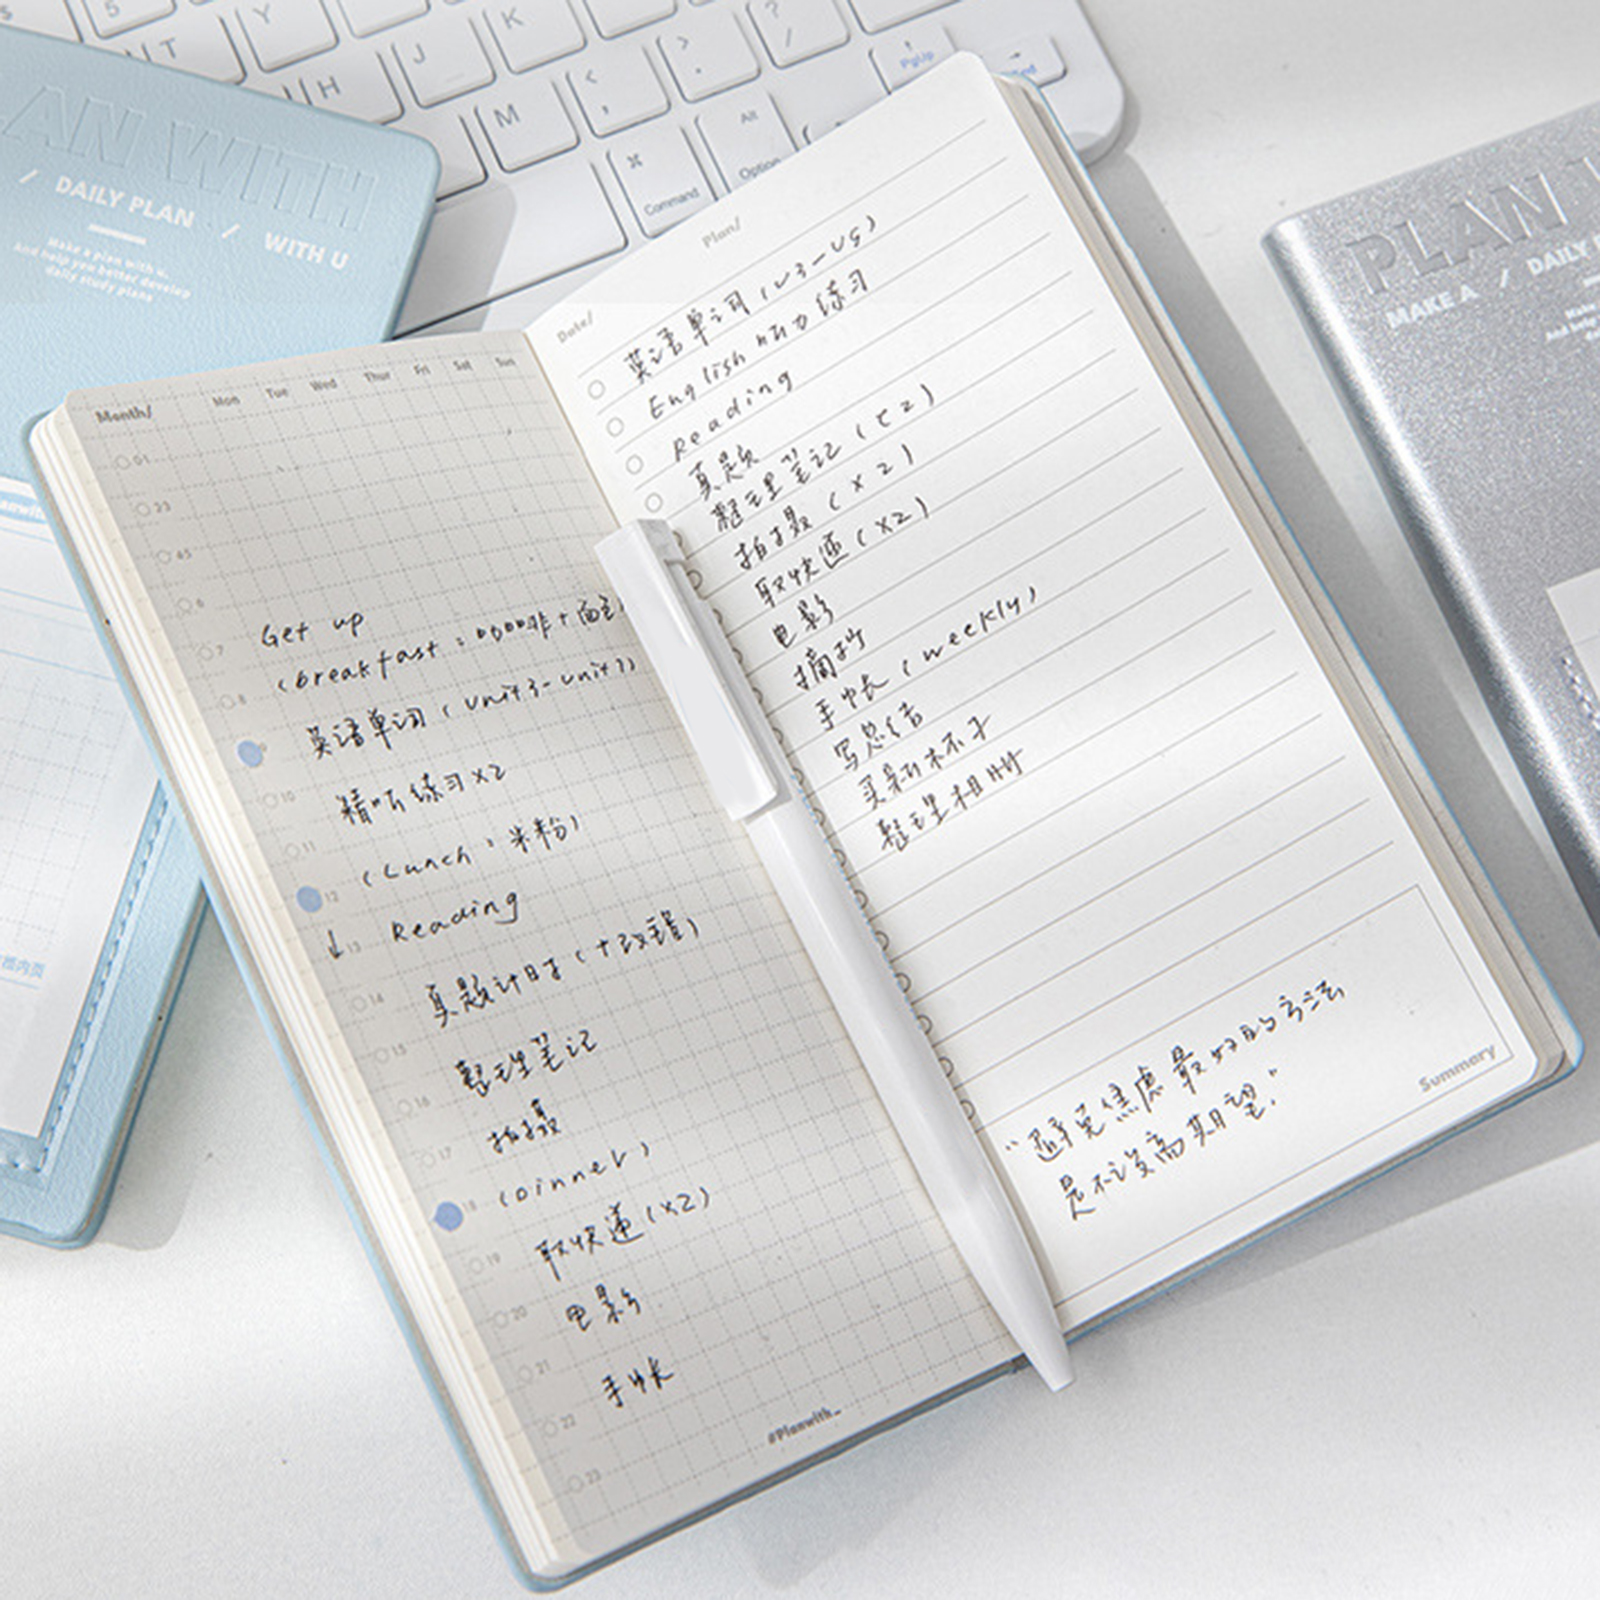 5
T
Y
K
?
/
H
J
>
.
PgUp
M
<
,
Alt
Option
⌘
Command
AN WITH
/ DAILY PLAN / WITH U
Make a plan with u,
And help you better develop
daily study plans
Month/ Mon Tue Wed Thur Fri Sat Sun
01
23
45
6
7 Get up
8 (breakfast:
9 英语单词(unit3-unit
10 精听练习x2
11 (Lunch:米粉)
12 Reading
13 真题计时(+改错)
14 整理笔记
15 拍摄
16 (Dinner)
17 取快递(x2)
18 电影
19 手帐
20
21
22
23
#Planwith_
Date/ Plan/
英语单词(U3-U5)
English 听力练习
Reading
真题
整理笔记(t2)
拍摄(x2)
取快递(x2)
电影
摘抄
手帐(weekly)
写总结
买新本子
整理相册
"避免焦虑最好的方法
是不设高期望."
Summary
PLAN
MAKE A / DAILY
内页